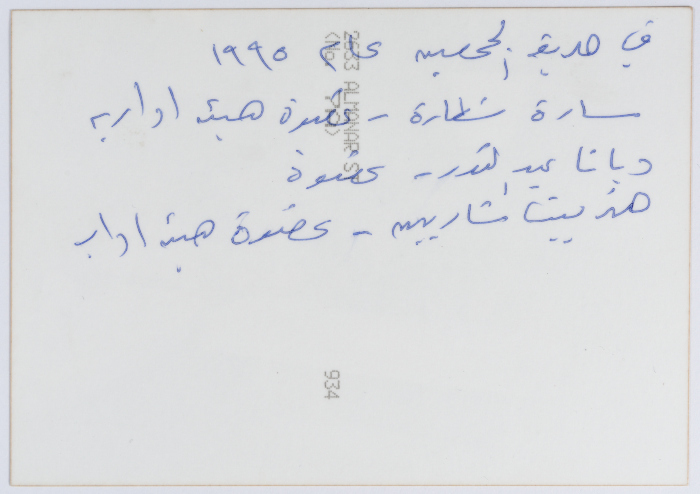 في حديقة الجمعية عام ١٩٩٥
سارة شطارة - عضوة هيئة ادارية
ديانا عبد النور - عضوة
هنرييت شاريين - عضوة هيئة ادار
2633 ALMONAR S
<No. >
934